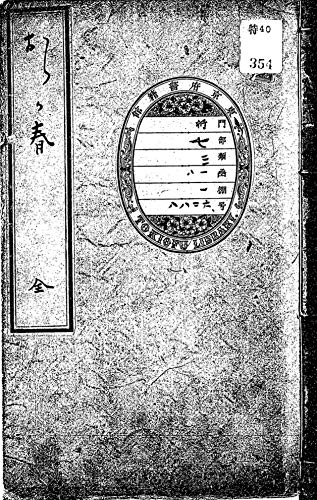 おらが春
全
特40
354
東京府書籍館
特
門
七
部
三
類
八一
函
一
棚
六二八八
号
TOKIOFU LIBRARY.